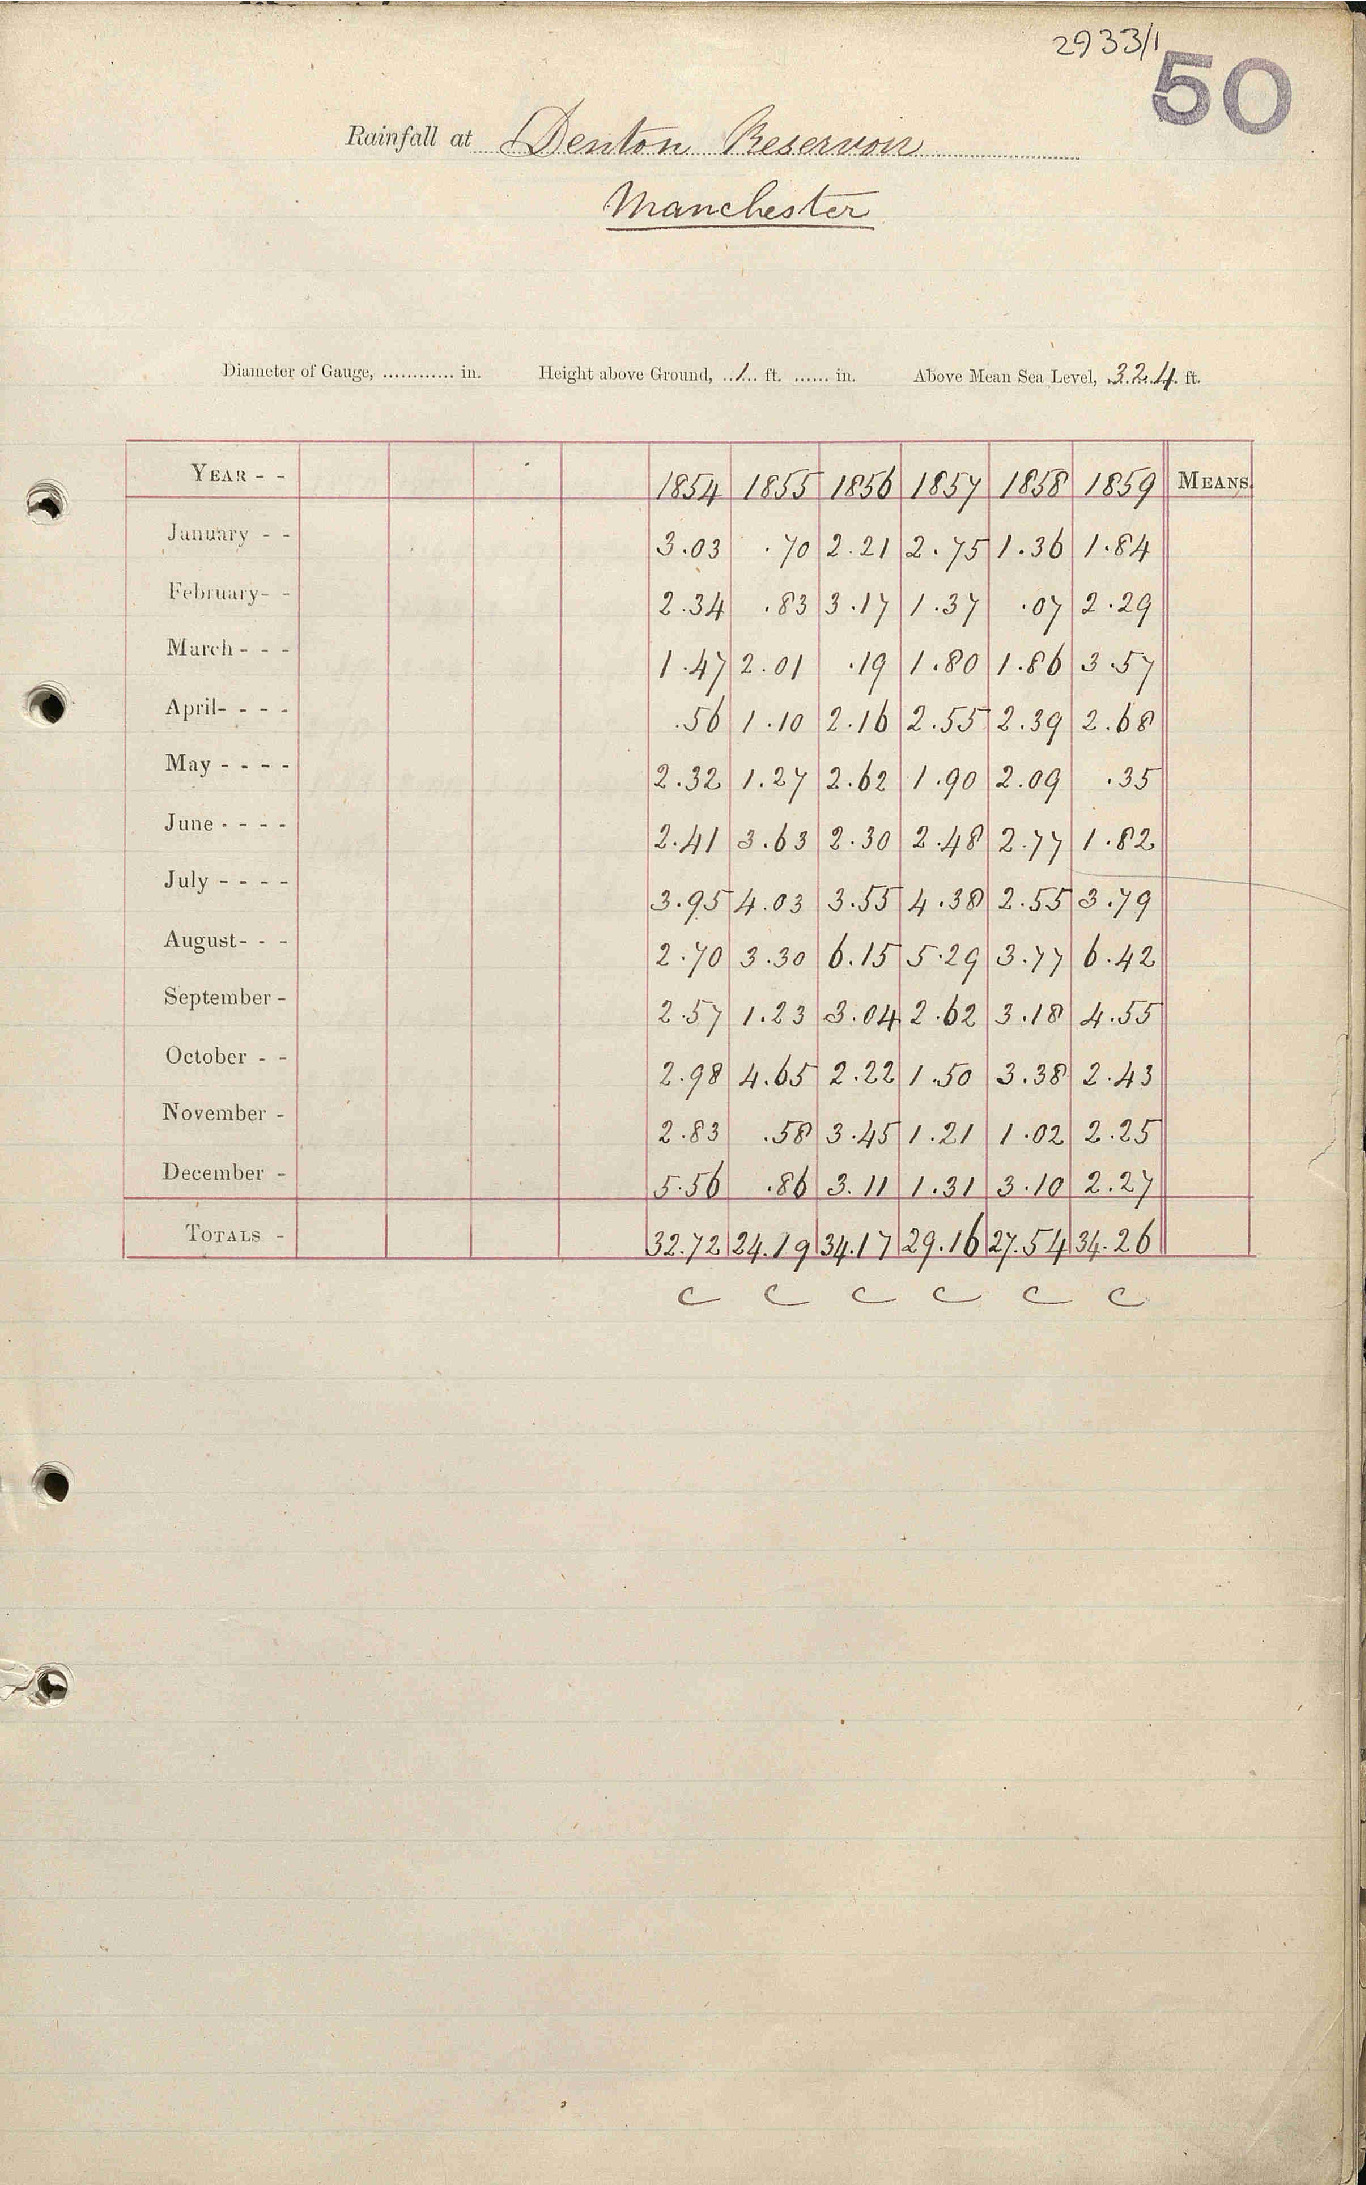 2933/1
50
Rainfall at Denton Reservoir
Manchester
Diameter of Gauge, ............ in. Height above Ground, ..1... ft. ...... in. Above Mean Sea Level, .324. ft.
YEAR - - 1854 1855 1856 1857 1858 1859 MEANS.
January - - 3.03 .70 2.21 2.75 1.36 1.84
February- - 2.34 .83 3.17 1.37 .07 2.29
March - - - 1.47 2.01 .19 1.80 1.86 3.57
April- - - - .56 1.10 2.16 2.55 2.39 2.68
May - - - - 2.32 1.27 2.62 1.90 2.09 .35
June - - - - 2.41 3.63 2.30 2.48 2.77 1.82
July - - - - 3.95 4.03 3.55 4.38 2.55 3.79
August- - - 2.70 3.30 6.15 5.29 3.77 6.42
September - 2.57 1.23 3.04 2.62 3.18 4.55
October - - 2.98 4.65 2.22 1.50 3.38 2.43
November - 2.83 .58 3.45 1.21 1.02 2.25
December - 5.56 .86 3.11 1.31 3.10 2.27
TOTALS - 32.72 24.19 34.17 29.16 27.54 34.26
C C C C C C